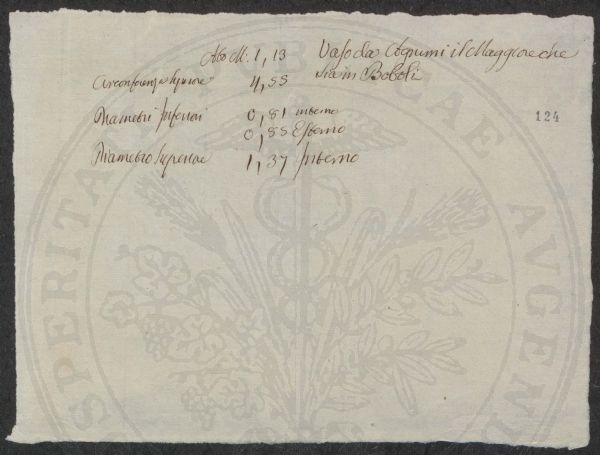 Alto M. 1,13 Vaso da Agrumi il Maggiore che
sia in Boboli
Circonferenza Superiore 4,55
Diametri Inferiori 0,81 interno
0,88 Esterno
Diametro Superiore 1,37 Interno
124
SPERITA AE AUGEND